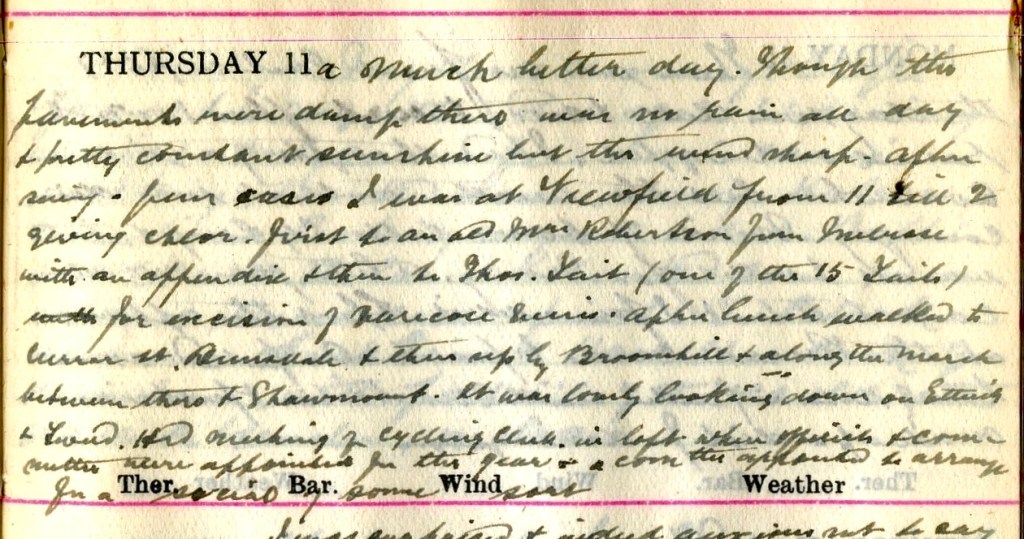 THURSDAY 11 a much better day. Though the
pavements were damp there was no rain all day
& pretty constant sunshine but the wind sharp. After
seeing a few cases I was at Viewfield from 11 till 2
giving chlor. first to an old Mrs Robertson from Melrose
with an appendix & then to Thos. Tait (one of the 15 Taits)
for excision of varicose veins. After lunch walked to
at Dunsdale & then up by Broomhill & along the march
between there & Shawmount. It was lovely looking down on Ettrick
& Tweed. Had meeting of Cycling Club in loft when officials & com
mittee were appointed for the year & a com tee appointed to arrange
for a social of some sort
Ther. Bar. Wind Weather
I was surprised & indeed anxious not to say